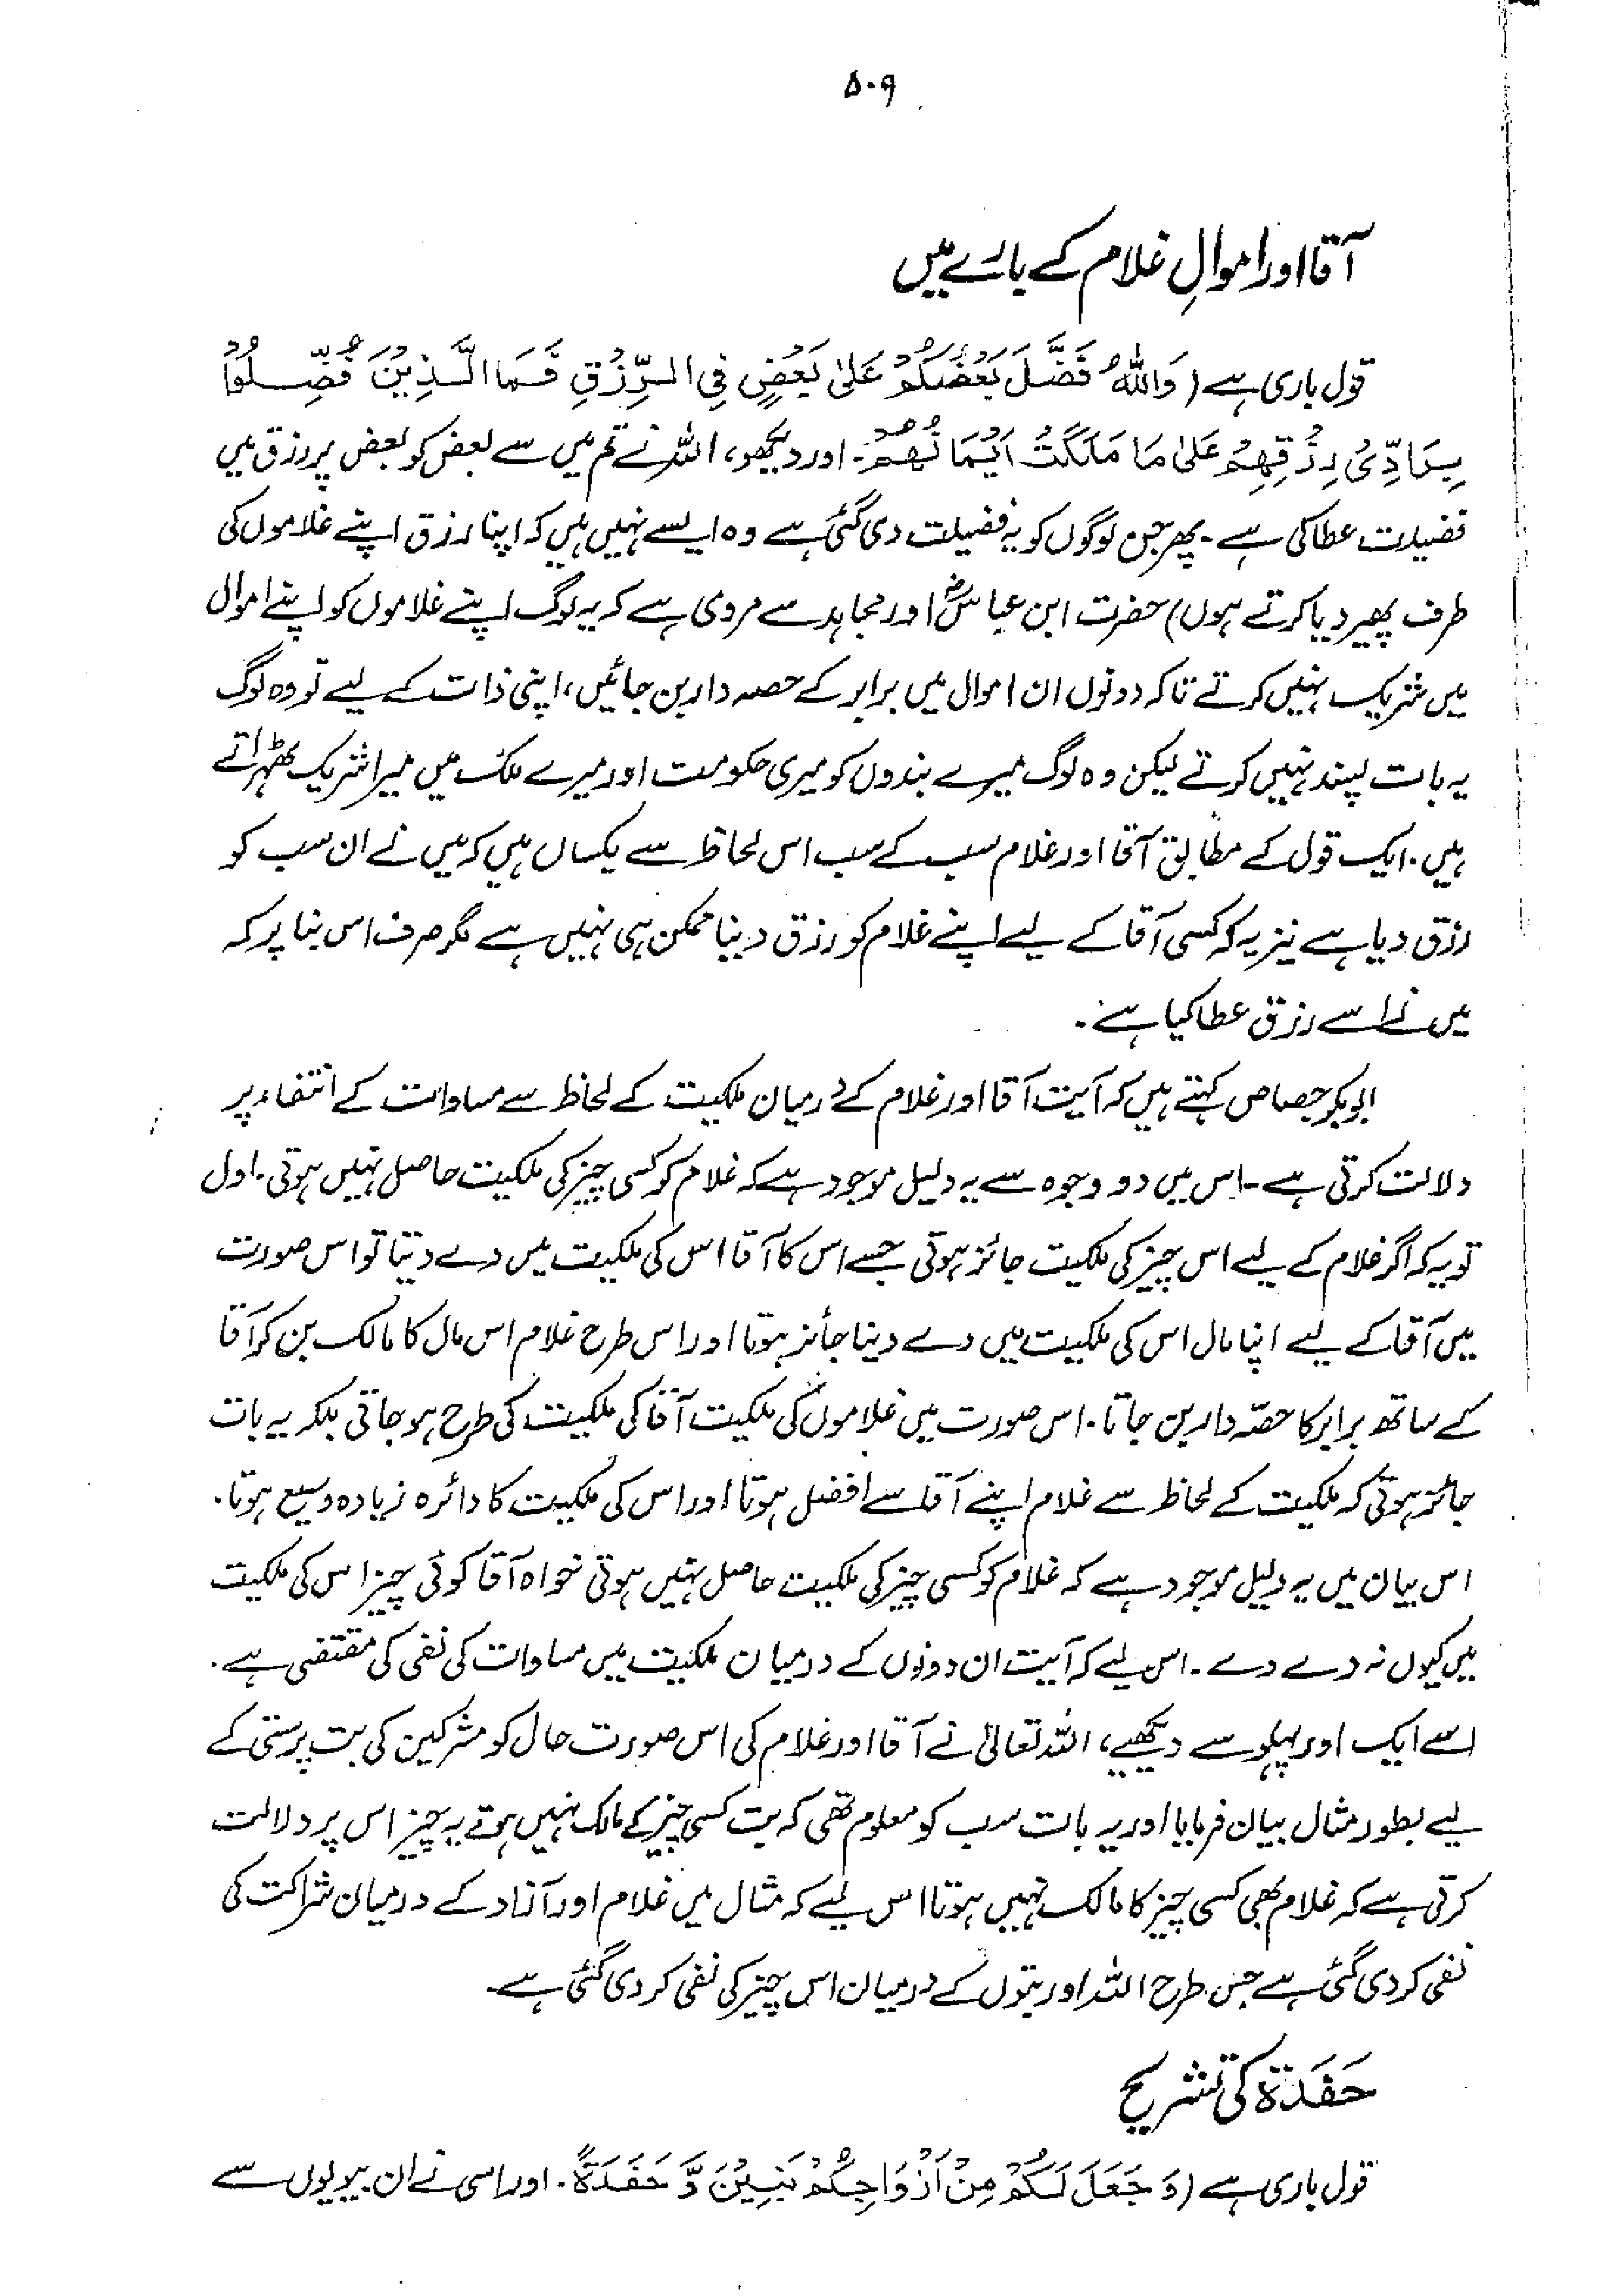 ۵۰۹
آقا اور اموالِ غلام کے بارے میں
قول باری ہے (وَاللّٰهُ فَضَّلَ بَعْضَكُمْ عَلٰى بَعْضٍ فِي الرِّزْقِ فَمَا الَّذِيْنَ فُضِّلُوْا
بِرَادِّيْ رِزْقِهِمْ عَلٰى مَا مَلَكَتْ اَيْمَانُهُمْ۔ اور دیکھو، اللہ نے تم میں سے بعض کو بعض پر رزق میں
فضیلت عطا کی ہے۔ پھر جن لوگوں کو یہ فضیلت دی گئی ہے وہ ایسے نہیں ہیں کہ اپنا رزق اپنے غلاموں کی
طرف پھیر دیا کرتے ہوں) حضرت ابن عباسؓ اور مجاہد سے مروی ہے کہ یہ لوگ اپنے غلاموں کو اپنے اموال
میں شریک نہیں کرتے تاکہ دونوں ان اموال میں برابر کے حصہ دار بن جائیں، اپنی ذات کے لیے تو وہ لوگ
یہ بات پسند نہیں کرتے لیکن وہ لوگ میرے بندوں کو میری حکومت اور میرے ملک میں میرا شریک ٹھہراتے
ہیں۔ ایک قول کے مطابق آقا اور غلام سب کے سب اس لحاظ سے یکساں ہیں کہ میں نے ان سب کو
رزق دیا ہے نیز یہ کہ کسی آقا کے لیے اپنے غلام کو رزق دینا ممکن ہی نہیں ہے مگر صرف اس بنا پر کہ
میں نے اسے رزق عطا کیا ہے۔
ابوبکر جصاص کہتے ہیں کہ آیت آقا اور غلام کے درمیان ملکیت کے لحاظ سے مساوات کے انتفاء پر
دلالت کرتی ہے۔ اس میں دو وجوہ سے یہ دلیل موجود ہے کہ غلام کو کسی چیز کی ملکیت حاصل نہیں ہوتی۔ اول
تو یہ کہ اگر غلام کے لیے اس چیز کی ملکیت جائز ہوتی جسے اس کا آقا اس کی ملکیت میں دے دیتا تو اس صورت
میں آقا کے لیے اپنا مال اس کی ملکیت میں دے دینا جائز ہوتا اور اس طرح غلام اس مال کا مالک بن کر آقا
کے ساتھ برابر کا حصّہ دار بن جاتا۔ اس صورت میں غلاموں کی ملکیت آقا کی ملکیت کی طرح ہو جاتی بلکہ یہ بات
جائز ہوتی کہ ملکیت کے لحاظ سے غلام اپنے آقا سے افضل ہوتا اور اس کی ملکیت کا دائرہ زیادہ وسیع ہوتا۔
اس بیان میں یہ دلیل موجود ہے کہ غلام کو کسی چیز کی ملکیت حاصل نہیں ہوتی خواہ آقا کوئی چیز اس کی ملکیت
میں کیوں نہ دے دے۔ اس لیے کہ آیت ان دونوں کے درمیان ملکیت میں مساوات کی نفی کی مقتضی ہے۔
اسے ایک اور پہلو سے دیکھیے، اللہ تعالیٰ نے آقا اور غلام کی اس صورت حال کو مشرکین کی بت پرستی کے
لیے بطور مثال بیان فرمایا اور یہ بات سب کو معلوم تھی کہ بت کسی چیز کے مالک نہیں ہوتے یہ چیز اس پر دلالت
کرتی ہے کہ غلام بھی کسی چیز کا مالک نہیں ہوتا اس لیے کہ مثال میں غلام اور آزاد کے درمیان شراکت کی
نفی کر دی گئی ہے جس طرح اللہ اور بتوں کے درمیان اس چیز کی نفی کر دی گئی ہے۔
حَفَدَۃ کی تشریح
قول باری ہے (وَجَعَلَ لَكُمْ مِنْ اَزْوَاجِكُمْ بَنِيْنَ وَّ حَفَدَةً۔ اور اسی نے ان بیویوں سے